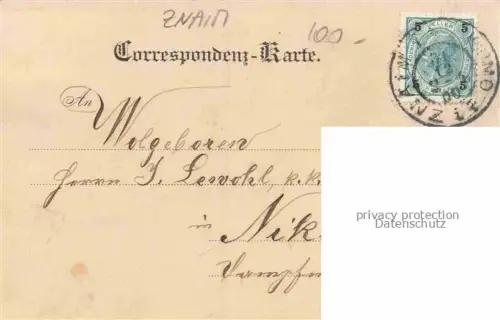 ZNAIM
100 -
5 5
Correspondenz-Karte.
An
Wolgeboren
Herrn J. Lewohl, k.k.
in
Nik
Dampfm
privacy protection
Datenschutz
ZNAIM